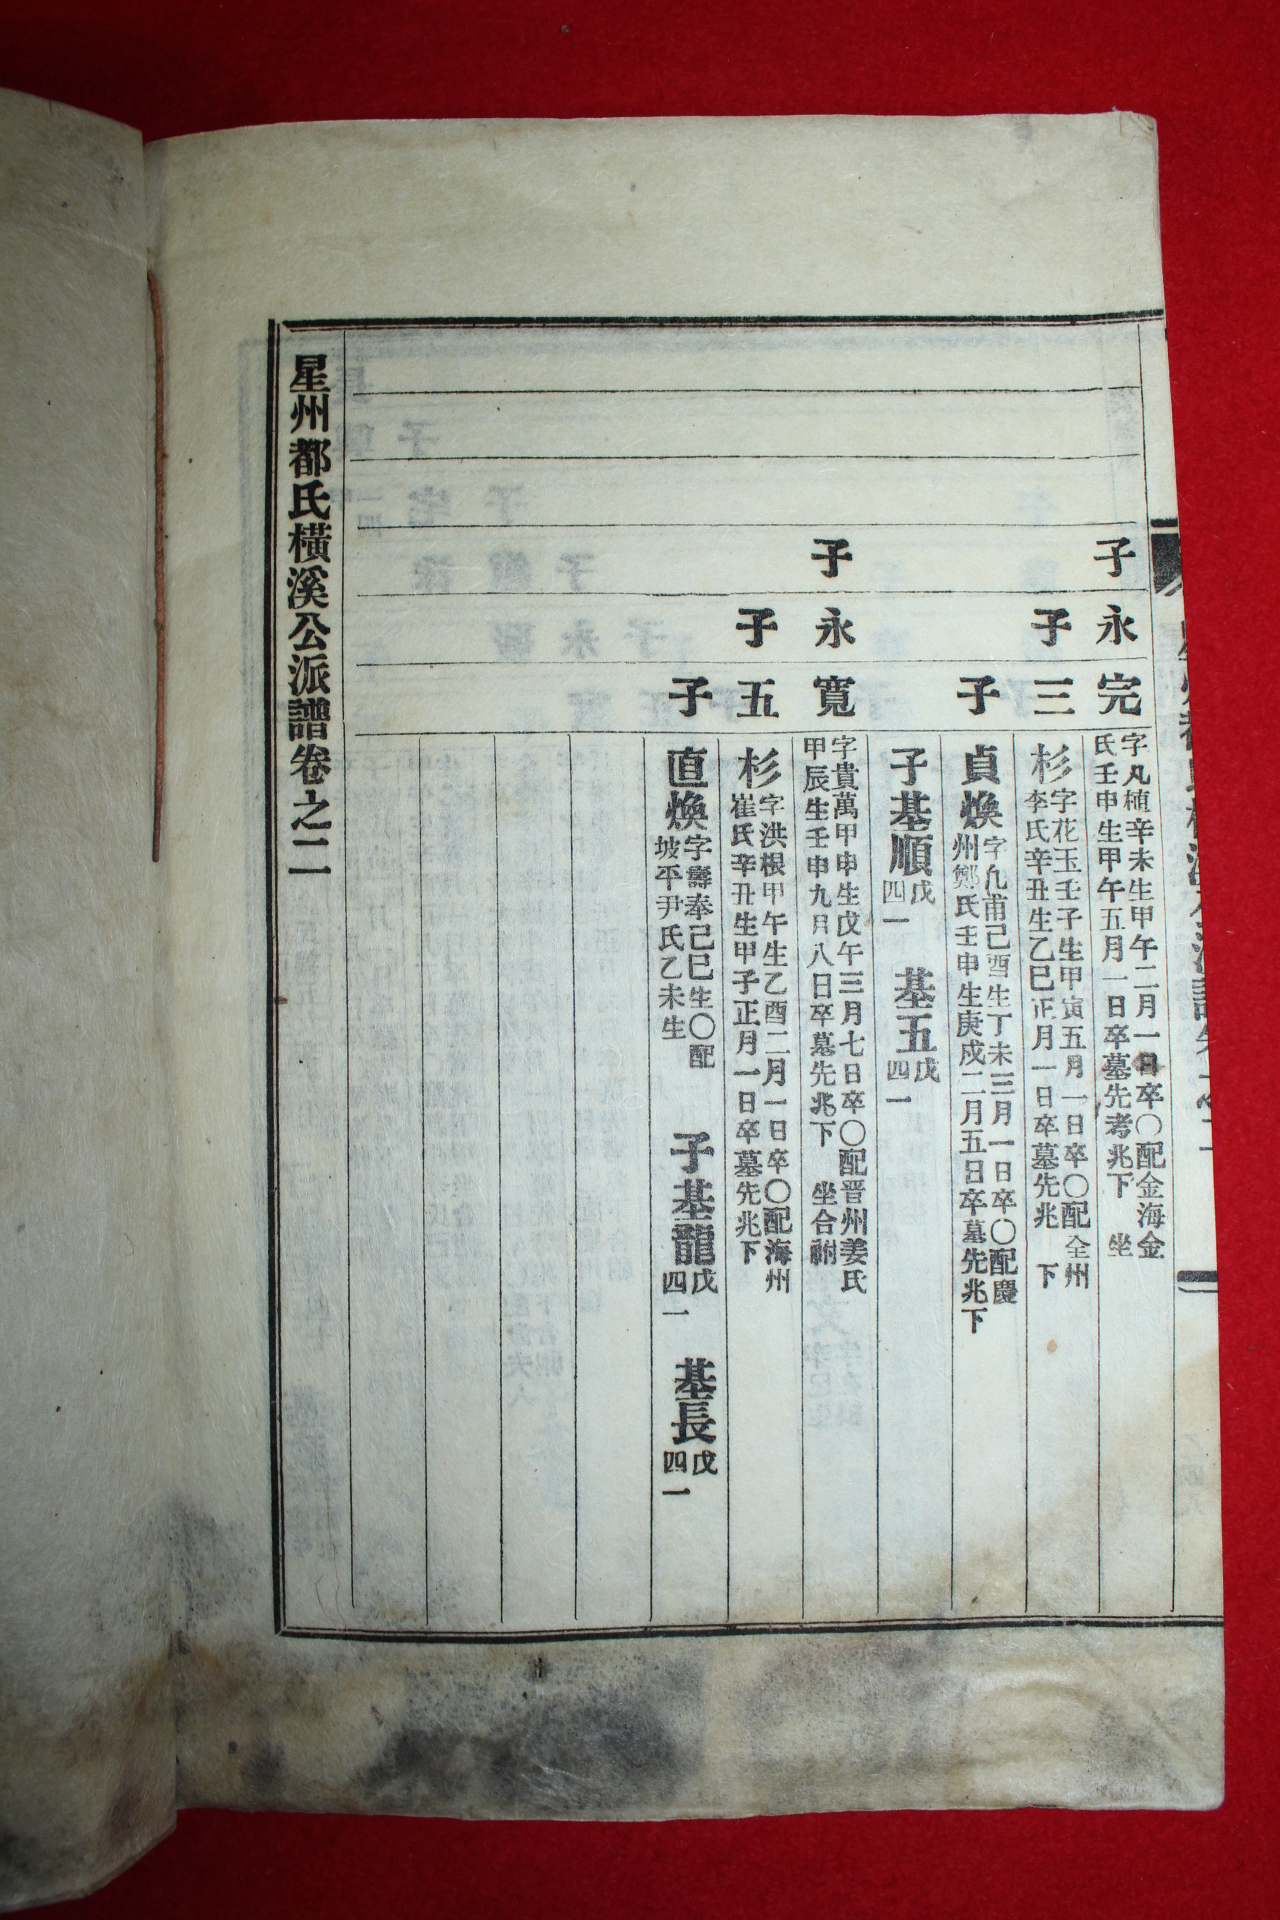 子永完
字凡植辛未生甲午二月一日卒〇配金海金
氏壬申生甲午五月一日卒墓先考兆下 坐
子三杉
字花玉壬子生甲寅五月一日卒〇配全州
李氏辛丑生乙巳正月一日卒墓先兆 下
子貞煥
字凢甫己酉生丁未三月一日卒〇配慶
州鄭氏壬申生庚戌二月五日卒墓先兆下
子基順 戊
四一
基五 戊
四一
子永寬
字貴萬甲申生戊午三月七日卒〇配晋州姜氏
甲辰生壬申九月八日卒墓先兆下 坐合祔
子五杉
字洪根甲午生乙酉二月一日卒〇配海州
崔氏辛丑生甲子正月一日卒墓先兆下
子直煥
字壽奉己巳生〇配
坡平尹氏乙未生
子基龍 戊
四一
基長 戊
四一
星州都氏橫溪公派譜卷之二